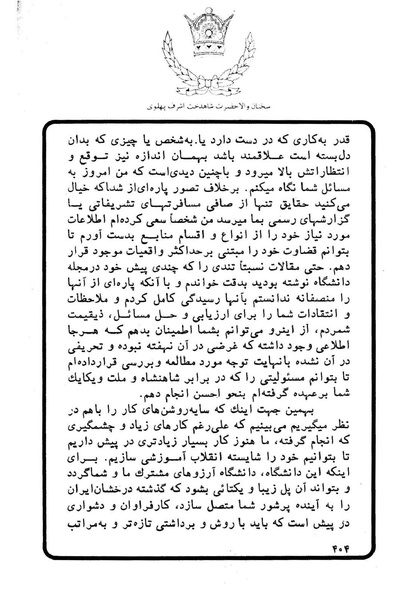 سخنان والاحضرت شاهدخت اشرف پهلوی
قدر به‌کاری که در دست دارد یا.به‌شخص یا چیزی که بدان
دل‌بسته است علاقمند باشد بهمان اندازه نیز توقع و
انتظاراتش بالا میرود و باچنین دیدی‌است که من امروز به
مسائل شما نگاه میکنم. برخلاف تصور پاره‌ای‌از شماکه خیال
می‌کنید حقایق تنها از صافی مسافرتهای تشریفاتی یا
گزارشهای رسمی بما میرسد من شخصاً سعی کرده‌ام اطلاعات
مورد نیاز خود را از انواع و اقسام منابع بدست آورم تا
بتوانم قضاوت خود را مبتنی برحداکثر واقعیات موجود قرار
دهم. حتی مقالات نسبتاً تندی را که چندی پیش خود درمجله
دانشگاه نوشته بودید بدقت خواندم و با آنکه پاره‌ای از آنها
را منصفانه ندانستم بآنها رسیدگی کامل کردم و ملاحظات
و انتقادات شما را برای ارزیابی و حل مسائل، ذیقیمت
شمردم، از اینرو می‌توانم بشما اطمینان بدهم که هرجا
اطلاعی وجود داشته که غرضی در آن نهفته نبوده و تحریفی
در آن نشده بانهایت توجه مورد مطالعه وبررسی قرارداده‌ام
تا بتوانم مسئولیتی را که در برابر شاهنشاه و ملت ویکایک
شما برعهده گرفته‌ام بنحو احسن انجام دهم.
بهمین جهت اینك که سایه‌روشن‌های کار را باهم در
نظر میگیریم می‌بینیم که علی‌رغم کارهای زیاد و چشمگیری
که انجام گرفته، ما هنوز کار بسیار زیادتری در پیش داریم
تا بتوانیم خود را شایسته انقلاب آموزشی سازیم. برای
اینکه این دانشگاه، دانشگاه آرزوهای مشترك ما و شماگردد
و بتواند آن پل زیبا و یکتائی بشود که گذشته درخشان‌ایران
را به آینده پرشور شما متصل سازد، کارفراوان و دشواری
در پیش است که باید با روش و برداشتی تازه‌تر و به‌مراتب
۴۰۴